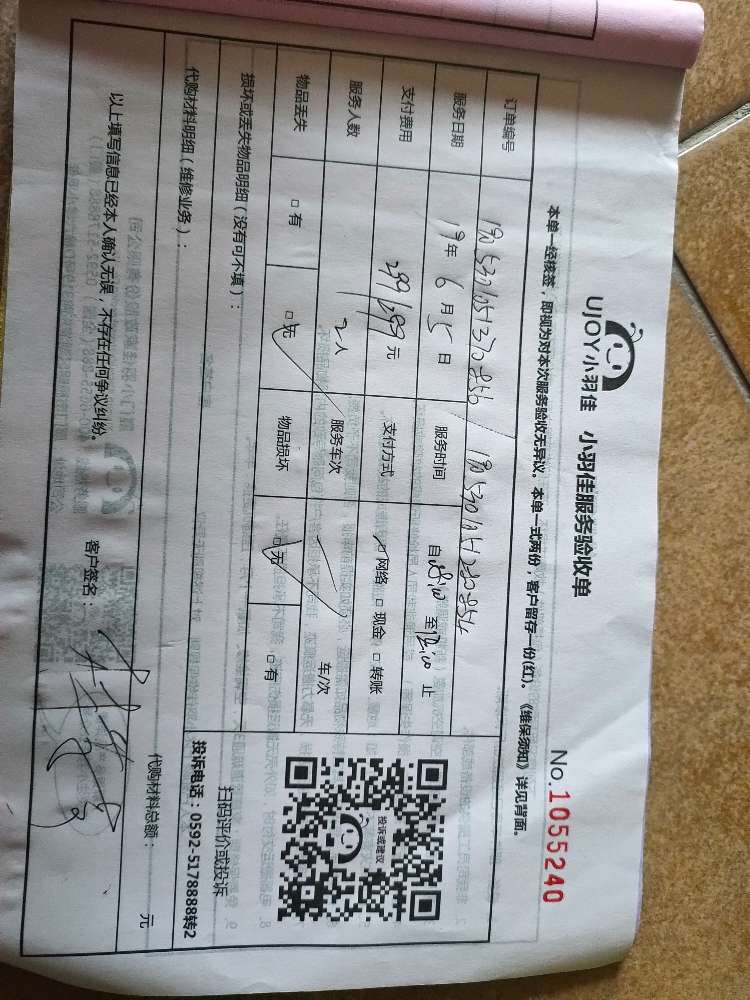 UJOY小羽佳 小羽佳服务验收单
No.1055240
本单一经核签，即视为对本次服务验收无异议。本单一式两份，客户留存一份(红)。《维保须知》详见背面。
订单编号
服务日期 19年 6月 5日 服务时间 自 至 止
支付费用 299/699元 支付方式 网络 □ 现金 □ 转账
服务人数 2人 服务车次 车/次
物品丢失 □ 有 □ 无 物品损坏 □ 无 □ 有
投诉或建议
扫码评价或投诉
投诉电话：0592-5178888转2
损坏或丢失物品明细（没有可不填）：
代购材料明细（维修业务）：
代购材料总额： 元
以上填写信息已经本人确认无误，不存在任何争议纠纷。 客户签名：